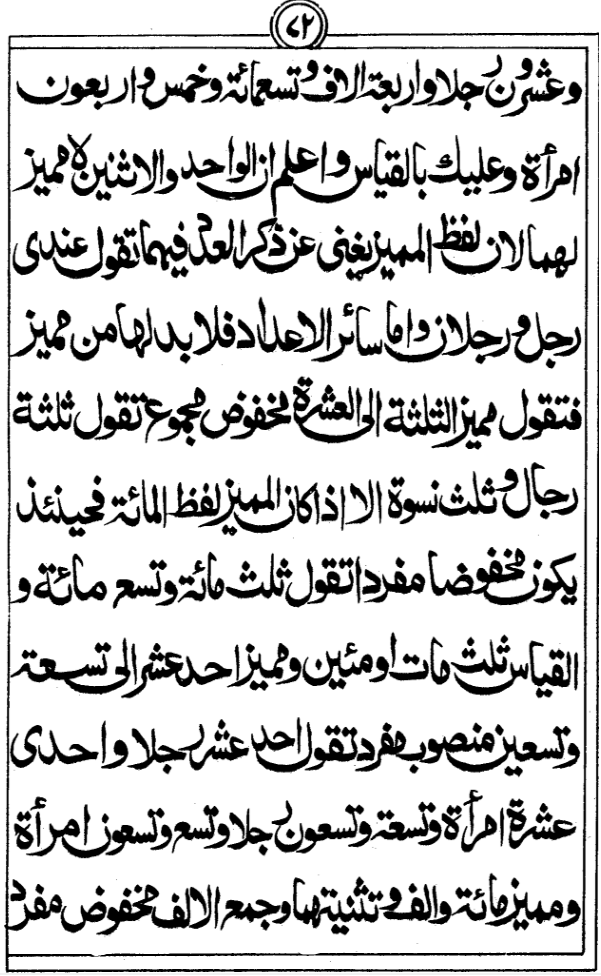 ٧٢
وعشرون رجلا واربعة الاف وتسعمائة وخمس واربعون
امرأة وعليك بالقياس واعلم ان الواحد والاثنين لا مميز
لهما لان لفظ المميز يغنى عن ذكر العدد فيهما تقول عندى
رجل ورجلان واما سائر الاعداد فلا بد لها من مميز
فتقول مميز الثلثة الى العشرة مخفوض مجموع تقول ثلثة
رجال وثلث نسوة الا اذا كان المميز لفظ المائة فحينئذ
يكون مخفوضا مفردا تقول ثلث مائة وتسع مائة و
القياس ثلث مات او مئين ومميز احد عشر الى تسعة
وتسعين منصوب مفرد تقول احد عشر رجلا واحدى
عشرة امرأة وتسعة وتسعون رجلا وتسع وتسعون امرأة
ومميز مائة والف وتثنيتهما وجمع الالف مخفوض مفرد